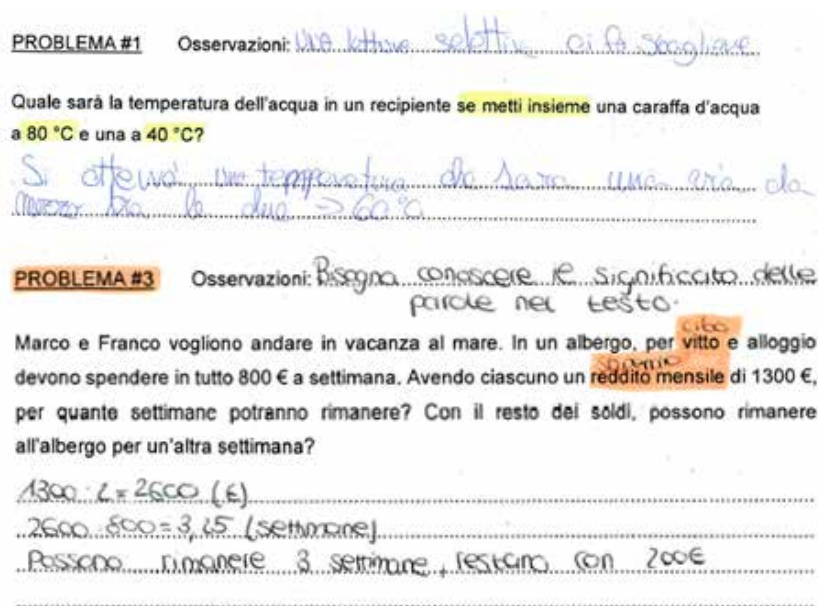 PROBLEMA #1 Osservazioni: una lettura selettiva ci fa sbagliare
Quale sarà la temperatura dell'acqua in un recipiente se metti insieme una caraffa d'acqua
a 80 °C e una a 40 °C?
Si otterrà una temperatura che sarà una via da
mezzo tra le due → 60°C
PROBLEMA #3 Osservazioni: Bisogna conoscere il significato delle
parole nel testo.
cibo
Marco e Franco vogliono andare in vacanza al mare. In un albergo, per vitto e alloggio
devono spendere in tutto 800 € a settimana. Avendo ciascuno un reddito mensile di 1300 €,
per quante settimane potranno rimanere? Con il resto dei soldi, possono rimanere
all'albergo per un'altra settimana?
1300 · 2 = 2600 (€)
2600 : 800 = 3,25 (settimane)
Possono rimanere 3 settimane, restano con 200€